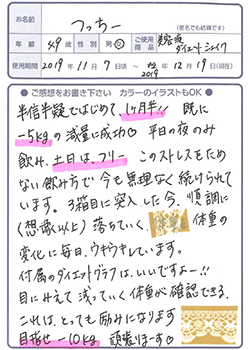 お名前
つっちー
(匿名でも結構です)
年齢 49歳 性別 男・女 ご使用商品 美容液ダイエットシェイク
使用期間 2019年11月7日 〜 2019年12月19日(現在)
●ご感想をお書き下さい カラーのイラストもOK●
半信半疑ではじめて、1ヶ月半!! 既に
-5kgの減量に成功♡ 平日の夜のみ
飲み、土日は、フリー このストレスをため
ない飲み方で今も無理なく続けられて
います。3箱目に突入した今、順調に
(想像以上)落ちていく、体重の
変化に毎日、ウキウキしています。
付属のダイエットグラフは、いいですよー!!
目にみえて減っていく体重が確認できる。
これは、とっても励みになります
目指せ-10kg 頑張りまーす♡